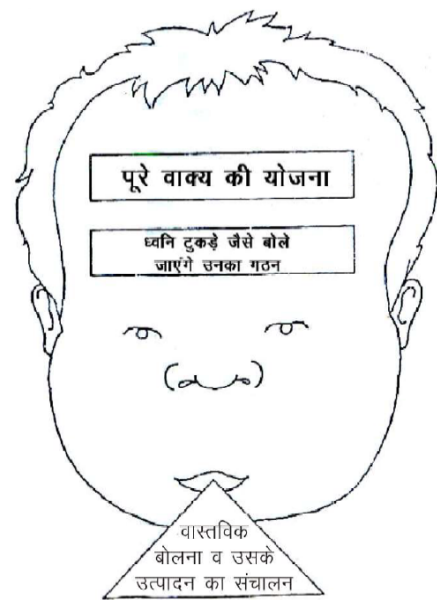 पूरे वाक्य की योजना
ध्वनि टुकड़े जैसे बोले
जाएंगे उनका गठन
वास्तविक
बोलना व उसके
उत्पादन का संचालन